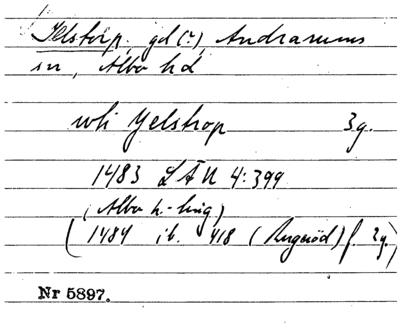 Jelstorp, gd(?), Andrarums
sn, Albo hd
uti Yelstrop 3g.
1483 LÄU 4:399
(Albo h.-ting)
(1484 ib. 418 (Rugeröd) f 2g.)
Nr 5897.